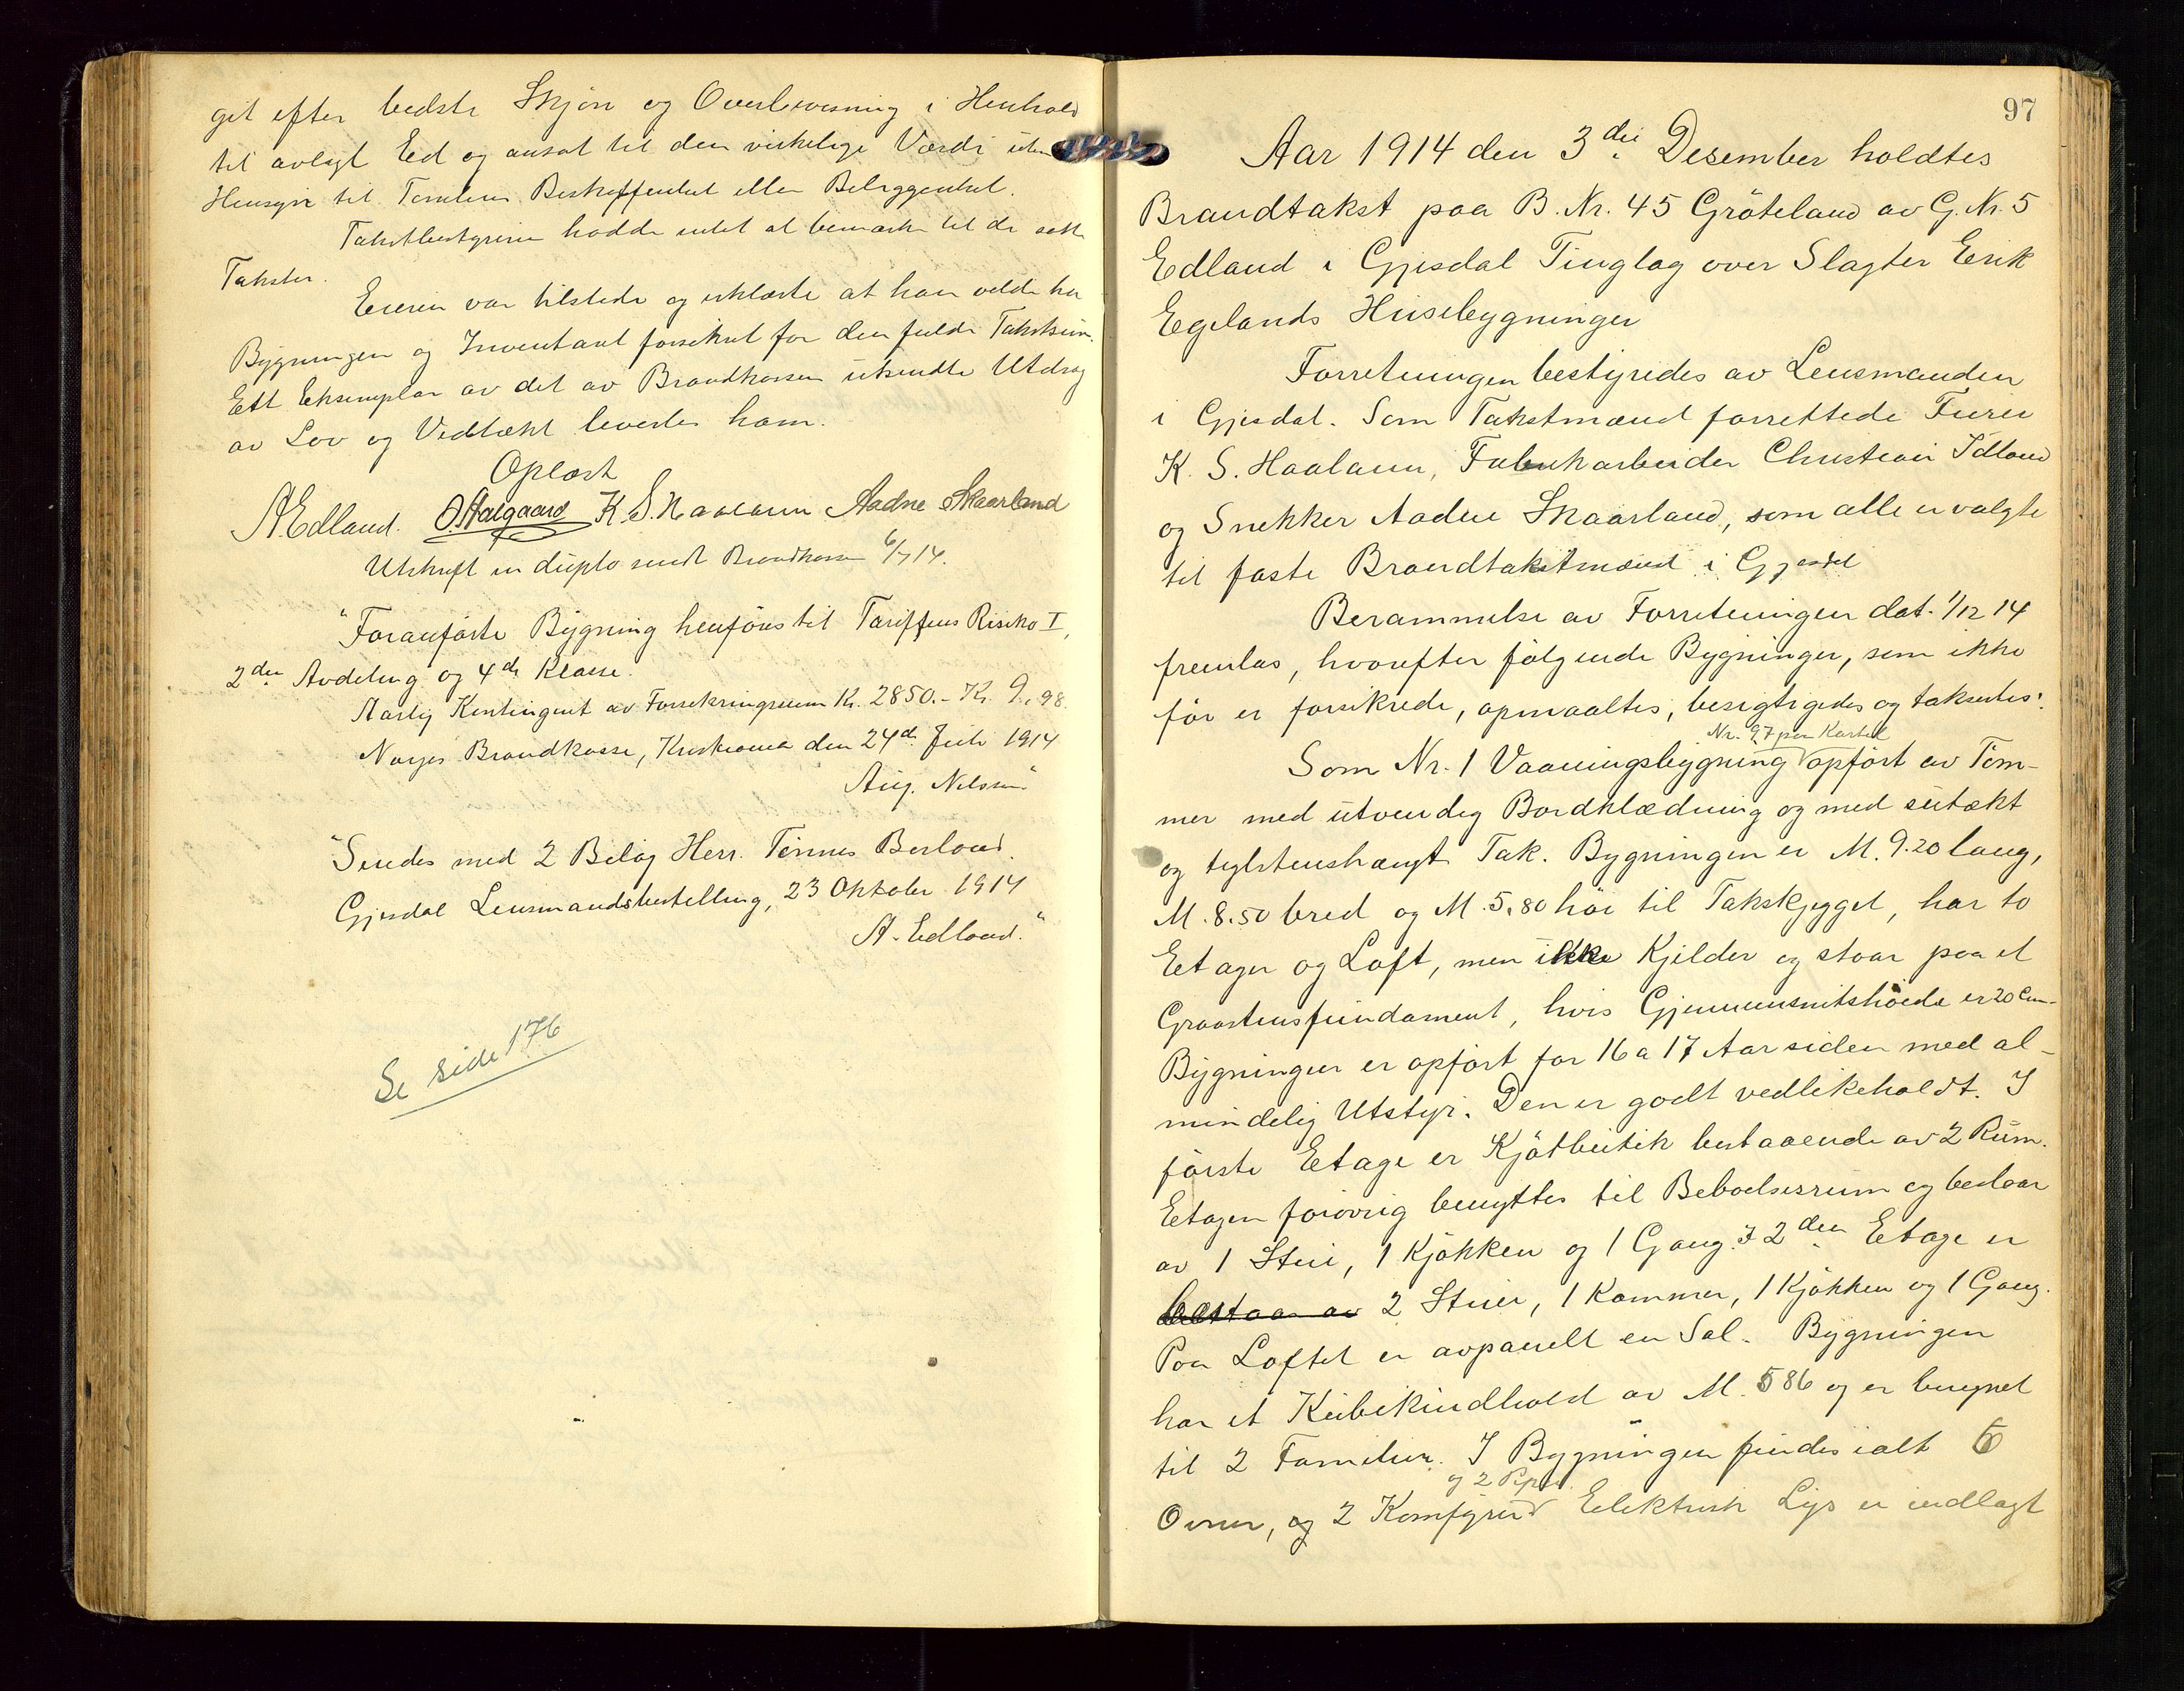 git efter bedste Skjøn og Overbevisning i Henhold
til avlagt Ed og ansat til den virkelige Værdi uten
Hensyn til Tomtens Beskaffenhet eller Beliggenhet.
Takstbestyreren hadde intet at bemærke til de satte
Takster.
Eieren var tilstede og erklærte at han vilde ha
Bygningen og Inventaret forsikret for den fulde Takstsum.
Ett Eksemplar av det av Brandkassen utsendte Utdrag
av Lov og Vedtækt leverte ham.
Oplæst
A. Edland. O. Aalgaard K. S. Haaland Aadne Skaarland
Utskrift in duplo sendt Brandkassen 6/7 14.
"Foranførte Bygning henføres til Tariffens Risiko I,
2den Avdeling og 4de Klasse.
Aarlig Kontingent av Forsikringssum Kr. 2850.- Kr. 9,98.
Norges Brandkasse, Kristiania den 24de Juli 1914
Aug. Nilssen"
"Sendes med 2 Bilag Herr. Tønnes Berland.
Gjesdal Lensmandsbestilling, 23 Oktober 1914
A. Edland."
Se side 176
97
Aar 1914 den 3die Desember holdtes
Brandtakst paa B. Nr. 45 Gröteland av G. Nr. 5
Edland i Gjesdal Tinglag over Slagter Erik
Egelands Husebygninger
Forretningen bestyredes av Lensmanden
i Gjesdal. Som Takstmænd forrettede Furer
K. S. Haaland, Fabrikarbeider Christian Idland
og Snekker Aadne Skaarland, som alle er valgte
til faste Brandtakstmænd i Gjesdal
Berammelse av Forretningen dat. 1/12 14
fremlas, hvorefter følgende Bygninger, som ikke
før er forsikrede, opmaaltes, besigtigedes og taksertes:
Nr. 97 paa Kartet
Som Nr. 1 Vaaningsbygning opført av Töm-
mer med utvendig Bordklædning og med sutækt
og teglstenshængt Tak. Bygningen er M. 9.20 lang,
M. 8.50 bred og M. 5.80 høi til Takskjegget, har to
Etager og Loft, men ikke Kjelder og staar paa et
Graastensfundament, hvis Gjennemsnitshøide er 20 Cm-
Bygningen er opført for 16 a 17 Aar siden med al-
mindelig Utstyr. Den er godt vedlikeholdt. I
første Etage er Kjøtbutik bestaaende av 2 Rum.
Etagen forøvrig benyttes til Beboelsesrum og bestaar
av 1 Stue, 1 Kjøkken og 1 Gang. I 2den Etage er
bestaar av 2 Stuer, 1 Kammer, 1 Kjøkken og 1 Gang.
Paa Loftet er avpanelt en Sal. Bygningen
har et Kubikindhold av M. 586 og er beregnet
til 2 Familier. I Bygningen findes ialt 6
og 2 Piper.
Ovner, og 2 Komfyrer Elektrisk Lys er indlagt